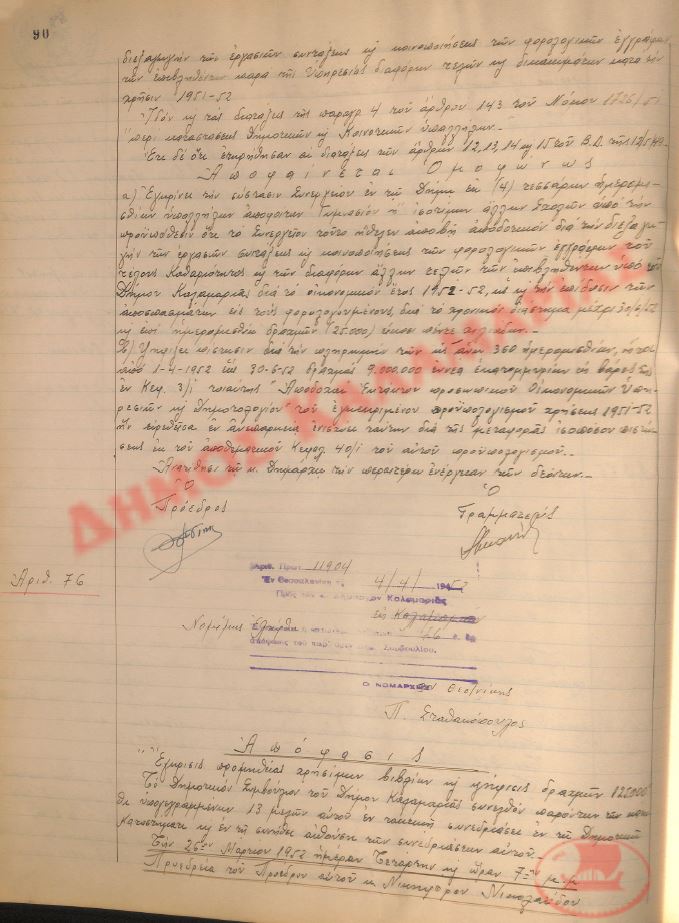 90
διεξαγωγήν τῶν ἐργασιῶν συντάξεως κ κοινοποιήσεως τῶν φορολογικῶν ἐγγράφων
τῶν ἐπιβληθέντων παρά τῆς Ὑπηρεσίας διαφόρων τελῶν κ δικαιωμάτων κατά τήν
χρῆσιν 1951-52
κ τάς διατάξεις τῆς παραγρ 4 τοῦ ἄρθρου 143 τοῦ Νόμου
περί καταστάσεως Δημοτικῶν κ Κοινοτικῶν ὑπαλλήλων.-
Ἔτι δέ ὅτι ἐτηρήθησαν αἱ διατάξεις τῶν ἄρθρων 12, 13, 14 κ 15 τοῦ Β.Δ. τῆς
Ἀποφαίνεται Ὁμοφώνως
α) Ἐγκρίνει τήν σύστασιν Συνεργείου ἐν τῷ Δήμῳ ἐκ (4) τεσσάρων ἡμερομι-
σθίων ὑπαλλήλων ἀποφοίτων Γυμνασίου ἤ ἰσοτίμων ἄλλων Σχολῶν ὑπό τήν
προϋπόθεσιν ὅτι τό Συνεργεῖον τοῦτο ἤθελεν ἀποβῇ ἀποδοτικόν διά τήν διεξαγω-
γήν τῶν ἐργασιῶν συντάξεως κ κοινοποιήσεως τῶν φορολογικῶν ἐγγράφων τοῦ
τέλους Καθαριότητος κ τῶν διαφόρων ἄλλων τελῶν τῶν ἐπιβληθέντων ὑπό τοῦ
Δήμου Καλαμαριᾶς διά τό οἰκονομικόν ἔτος 1952-52, κ τήν ἐπίδοσιν τῶν
ἀποσπασμάτων εἰς τούς φορολογουμένους, διά τό χρονικόν διάστημα μέχρι 30/6/52
κ ἐπί ἡμερομισθίῳ δραχμῶν (25.000) εἴκοσι πέντε χιλιάδων.-
β) Ψηφίζει πίστωσιν διά τήν πληρωμήν τῶν ὡς ἄνω 360 ἡμερομισθίων, ἤτοι
ἀπό 1-4-1952 ἕως 30-6-52 δραχμάς 9.000.000 ἐννέα ἑκατομμυρίων εἰς βάρος τοῦ
ἐν Κεφ. 3/1 "Ἀποδοχαί Ἐκτάκτου προσωπικοῦ Οἰκονομικῶν Ὑπη-
ρεσιῶν κ Δημοτολογίου" τοῦ ἐγκεκριμένου προϋπολογισμοῦ χρήσεως 1951-52
τήν εὑρεθεῖσα ἐν ἀνεπαρκείᾳ ἐνισχύει ταύτην διά τῆς μεταφορᾶς ἰσοπόσου πιστώ-
σεως ἐκ τοῦ ἀποθεματικοῦ Κεφαλ 40/1 τοῦ αὐτοῦ προϋπολογισμοῦ.-
Ἀνατίθησι τῷ κ. Δημάρχῳ τήν περαιτέρω ἐνέργειαν τῶν δεόντων.-
Ὁ Ὁ
Πρόεδρος Γραμματεύς
ΔΗΜΟΣ ΚΑΛΑΜΑΡΙΑΣ
Ἀριθ. 76
Ἀριθ. Πρωτ. 11904
Ἐν Θεσσαλονίκῃ τῇ 4/4/1952
Πρός τόν κ. Δήμαρχον Καλαμαριᾶς
εἰς Καλαμαριάν
Νομίμως ἐλήφθη 76
ἀπόφασις τοῦ παρ' ὑμῖν Δημ. Συμβουλίου.
Ὁ ΝΟΜΑΡΧΗΣ Θεσ/νίκης
Π. Σταθακόπουλος
Ἀπόφασις
"Ἔγκρισις προμηθείας χρησίμων βιβλίων κ ψήφισις δραχμῶν 825.000"
Τό Δημοτικόν Συμβούλιον τοῦ Δήμου Καλαμαριᾶς συνελθόν παρόντων τῶν κάτω-
θι ὑπογεγραμμένων 13 μελῶν αὐτοῦ ἐν τακτικῇ συνεδριάσει ἐν τῷ Δημοτικῷ
Καταστήματι κ ἐν τῇ συνήθει αἰθούσῃ τῶν συνεδριάσεων αὐτοῦ.-
Τήν 26ην Μαρτίου 1952 ἡμέραν Τετάρτην κ ὥραν 7ην μ.μ
Προεδρείᾳ τοῦ Προέδρου αὐτοῦ κ Νικηφόρου Νικολαΐδου